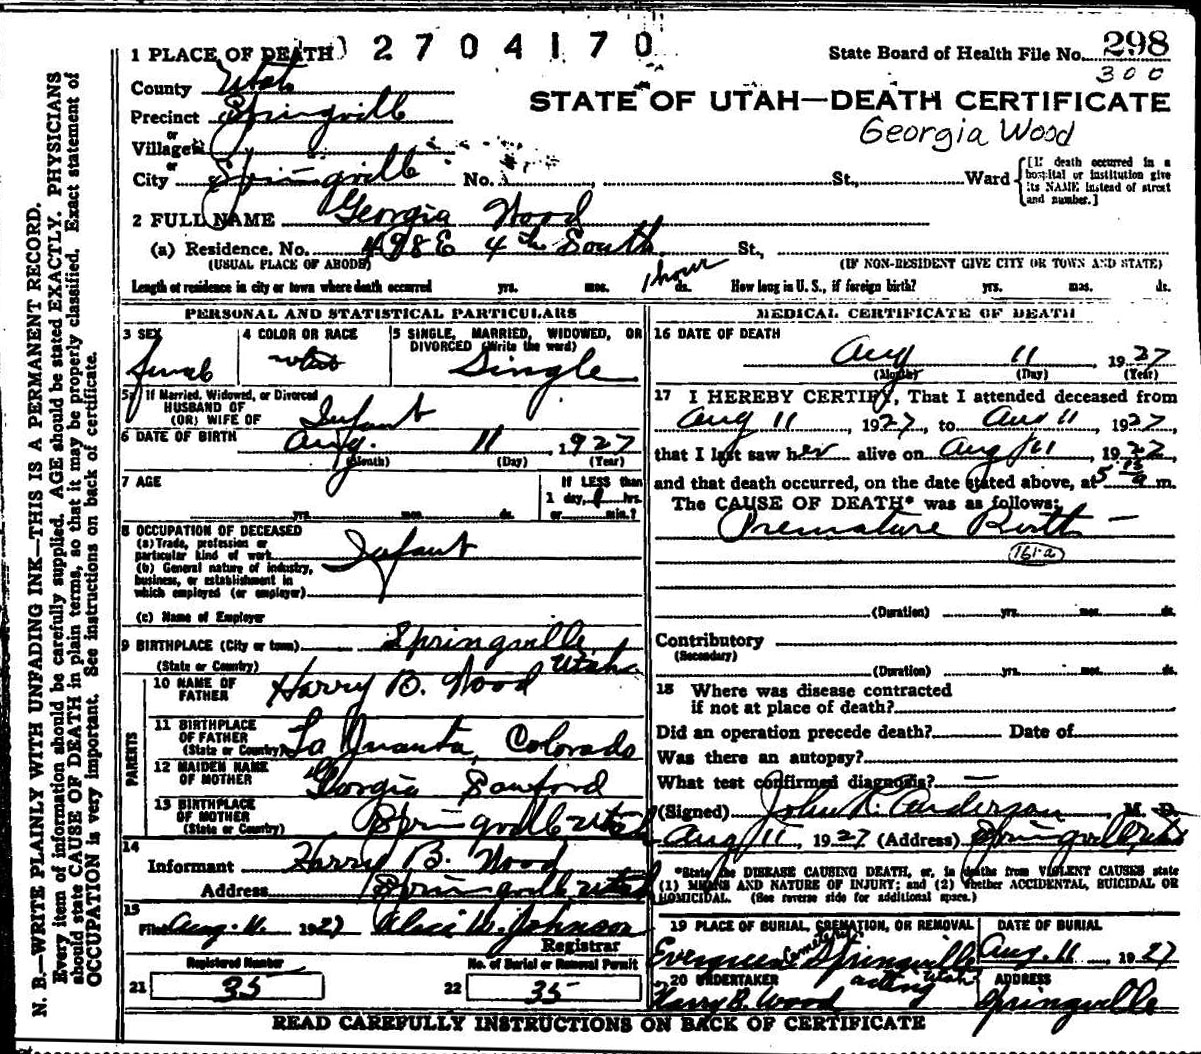 1 PLACE OF DEATH 2704170
State Board of Health File No. 298
300
County Utah
STATE OF UTAH—DEATH CERTIFICATE
Precinct Springville
Georgia Wood
or
Village
or
City Springville No. St., Ward
[If death occurred in a hospital or institution give its NAME instead of street and number.]
2 FULL NAME Georgia Wood
(a) Residence. No. 498 E 4th South St.,
(USUAL PLACE OF ABODE) (IF NON-RESIDENT GIVE CITY OR TOWN AND STATE)
Length of residence in city or town where death occurred yrs. mos. 1 hour ds. How long in U. S., if foreign birth? yrs. mos. ds.
PERSONAL AND STATISTICAL PARTICULARS
3 SEX
4 COLOR OR RACE
5 SINGLE, MARRIED, WIDOWED, OR DIVORCED (Write the word)
Female
white
Single
5a If Married, Widowed, or Divorced
HUSBAND OF
(OR) WIFE OF Infant
6 DATE OF BIRTH Aug. 11, 1927
(Month) (Day) (Year)
7 AGE
yrs. mos. ds.
If LESS than
1 day, 1 hrs.
or min.?
8 OCCUPATION OF DECEASED
(a) Trade, profession or
particular kind of work Infant
(b) General nature of industry,
business, or establishment in
which employed (or employer)
(c) Name of Employer
9 BIRTHPLACE (City or town) Springville
(State or Country) Utah
PARENTS
10 NAME OF FATHER Harry B. Wood
11 BIRTHPLACE OF FATHER
(State or Country) La Juanta, Colorado
12 MAIDEN NAME OF MOTHER Georgia Sanford
13 BIRTHPLACE OF MOTHER
(State or Country) Springville Utah
14
Informant Harry B. Wood
Address Springville Utah
15
Filed Aug. 11, 1927 Alice W. Johnson
Registrar
Registered Number No. of Burial or Removal Permit
21 35 22 35
MEDICAL CERTIFICATE OF DEATH
16 DATE OF DEATH
Aug 11, 1927
(Month) (Day) (Year)
17 I HEREBY CERTIFY, That I attended deceased from
Aug 11, 1927, to Aug 11, 1927,
that I last saw her alive on Aug 11, 1927,
and that death occurred, on the date stated above, at 5 15 a m.
The CAUSE OF DEATH* was as follows:
Premature Birth —
161-a
(Duration) yrs. mos. ds.
Contributory
(Secondary)
(Duration) yrs. mos. ds.
18 Where was disease contracted
if not at place of death?
Did an operation precede death? Date of
Was there an autopsy?
What test confirmed diagnosis? —
(Signed) John R. Anderson M. D.
Aug 11, 1927 (Address) Springville, Utah
*State the DISEASE CAUSING DEATH, or, in deaths from VIOLENT CAUSES state
(1) MEANS AND NATURE OF INJURY; and (2) whether ACCIDENTAL, SUICIDAL OR
HOMICIDAL. (See reverse side for additional space.)
19 PLACE OF BURIAL, CREMATION, OR REMOVAL DATE OF BURIAL
Evergreen Cemetery Springville Utah Aug. 11, 1927
20 UNDERTAKER acting ADDRESS
Harry B. Wood Springville
READ CAREFULLY INSTRUCTIONS ON BACK OF CERTIFICATE
N. B.—WRITE PLAINLY WITH UNFADING INK—THIS IS A PERMANENT RECORD.
Every item of information should be carefully supplied. AGE should be stated EXACTLY. PHYSICIANS
should state CAUSE OF DEATH in plain terms, so that it may be properly classified. Exact statement of
OCCUPATION is very important. See instructions on back of certificate.